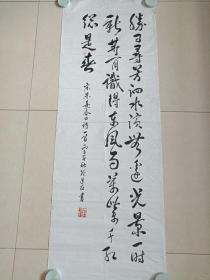 勝日尋芳泗水濱無邊光景一時
新等閒識得東風面萬紫千紅
總是春
宋朱熹春日詩一首